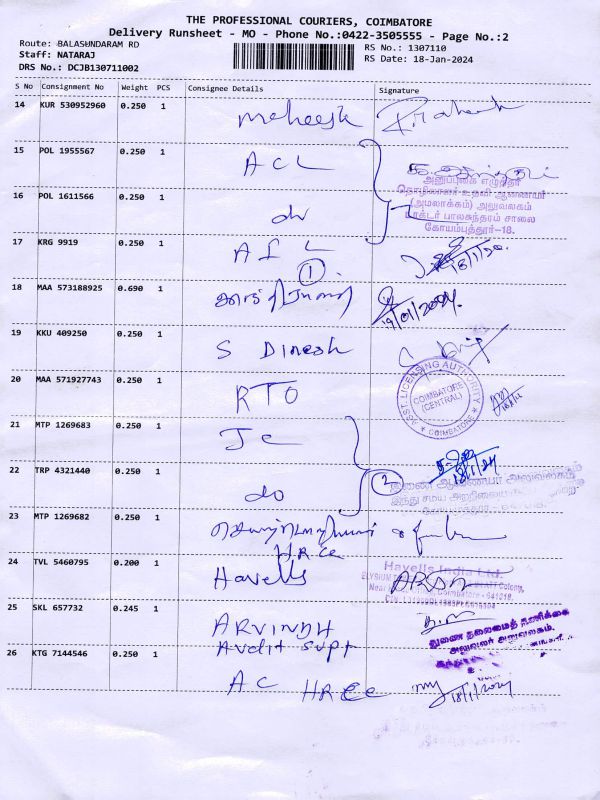 THE PROFESSIONAL COURIERS, COIMBATORE
Delivery Runsheet - MO - Phone No.:0422-3505555 - Page No.:2
Route: BALASUNDARAM RD
RS No.: 1307110
Staff: NATARAJ
RS Date: 18-Jan-2024
DRS No.: DCJB130711002
S No Consignment No Weight PCS Consignee Details Signature
14 KUR 530952960 0.250 1 Maheesh
15 POL 1955567 0.250 1 ACL
அனுப்புகை எழுத்தர்
தொழிலாளர் உதவி ஆணையர்
16 POL 1611566 0.250 1 do
(அமலாக்கம்) அலுவலகம்
டாக்டர் பாலசுந்தரம் சாலை
கோயம்புத்தூர்-18.
17 KRG 9919 0.250 1 AIL
1
18 MAA 573188925 0.690 1
19/01/2024
19 KKU 409250 0.250 1 S Dinesh
20 MAA 571927743 0.250 1 RTO
ASST. LICENSING AUTHORITY
COIMBATORE
(CENTRAL)
COIMBATORE
21 MTP 1269683 0.250 1 JC
18/1/24
22 TRP 4321440 0.250 1 do 2
இணை ஆணையர் அலுவலகம்
இந்து சமய அறநிலைய
23 MTP 1269682 0.250 1
HRCE
24 TVL 5460795 0.200 1 Havells
Havells India Ltd.
Coimbatore - 641018.
25 SKL 657732 0.245 1 ARVINDH
Audit Supt
துணை தலைமைத் தணிக்கை
அலுவலர் அலுவலகம்.
26 KTG 7144546 0.250 1 AC HRCE 18/1/2024